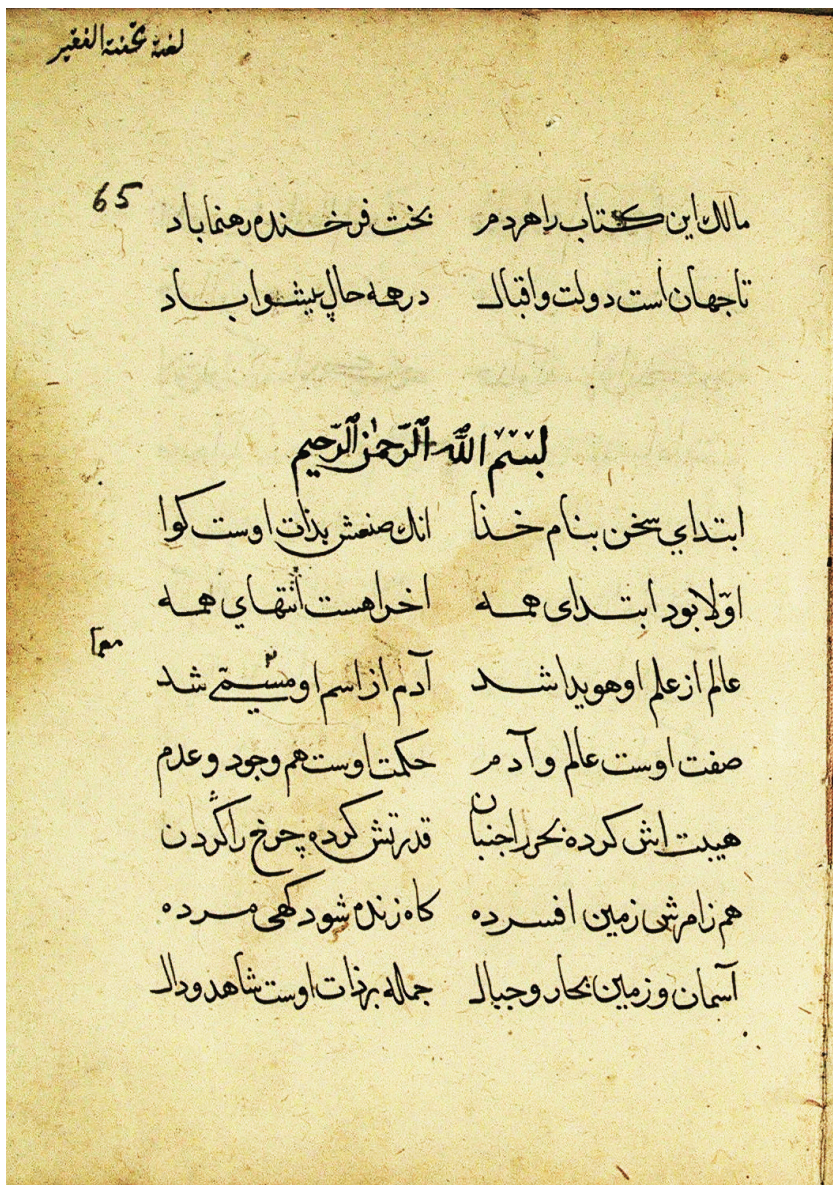 لغة تحفة الفقير
65
مالك این کتاب را هر دم بخت فرخنده رهنما باد
تا جهان است دولت و اقبال در همه حال پیشوا باد
بسم الله الرحمن الرحيم
ابتداي سخن بنام خذا انك صنعش بذات اوست کوا
اوّلا بود ابتدای همه اخرا هست انتهاي همه
عالم از علم او هویدا شد آدم از اسم او مسمّی شد
صفت اوست عالم و آدم حکمت اوست هم وجود و عدم
هیبت اش کرده بحر را جنبان قدرتش کرده چرخ را گردن
هم ز امرش زمین افسرده کاه زنده شود کهی مرده
آسمان و زمین بحار و جبال جمله بر ذات اوست شاهد و دال